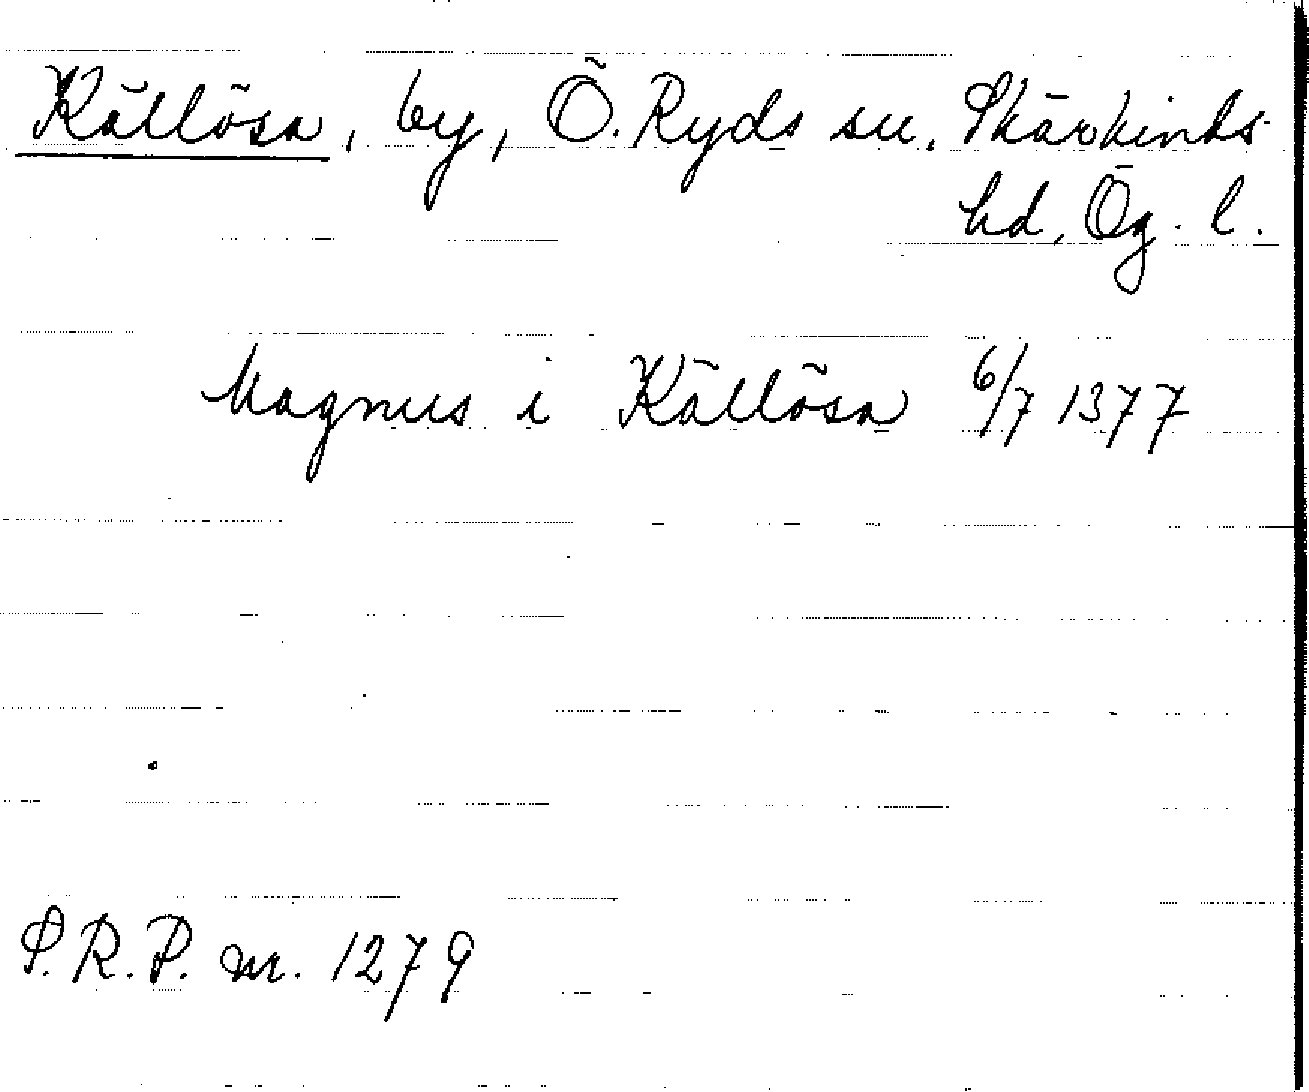 Källösa, by, Ö. Ryds sn. Skärkinds
hd, Ög. l.
Magnus i Källösa 6/7 1377
S.R.P. nr. 1279